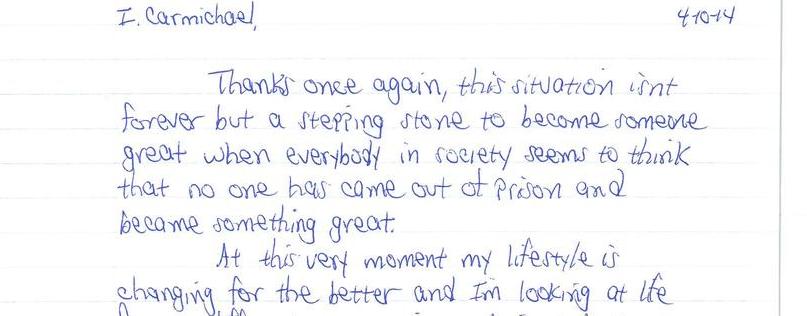 I. Carmichael, 4-10-14
Thanks once again, this situation isnt
forever but a stepping stone to become someone
great when everybody in society seems to think
that no one has came out of prison and
became something great.
At this very moment my lifestyle is
changing for the better and Im looking at lfe